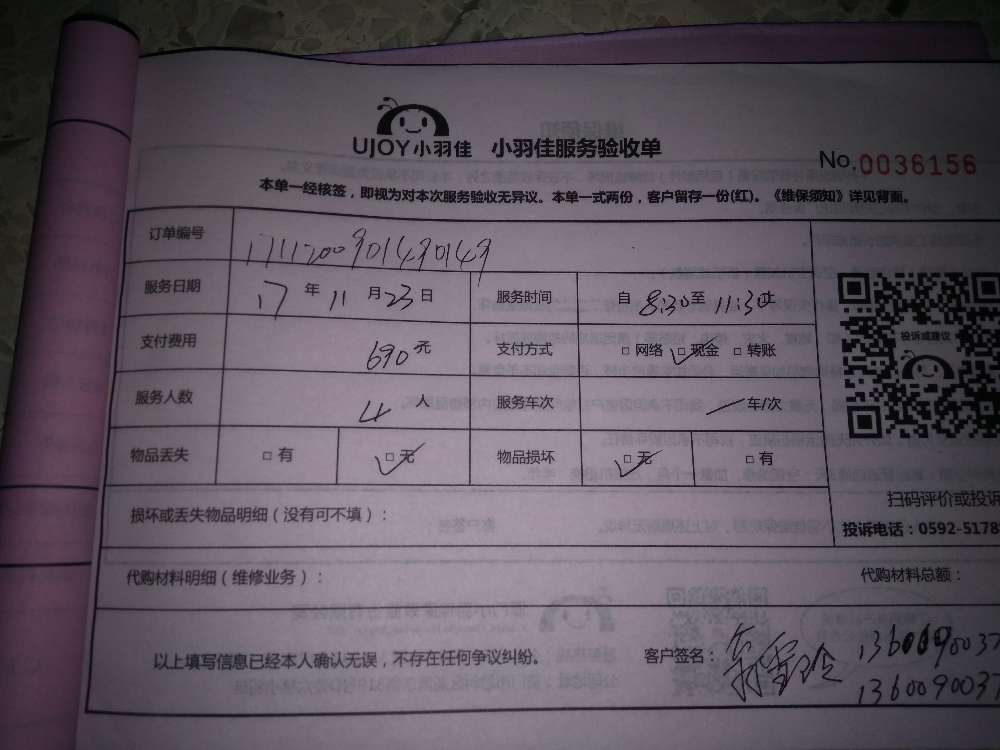 UJOY小羽佳 小羽佳服务验收单
No.0036156
本单一经核签，即视为对本次服务验收无异议。本单一式两份，客户留存一份(红)。《维保须知》详见背面。
订单编号 1711200901490149
服务日期 17年11月23日 服务时间 自8:30至11:30止
支付费用 690元 支付方式 □网络 □现金 □转账
投诉或建议
服务人数 4人 服务车次 车/次
物品丢失 □有 □无 物品损坏 □无 □有
扫码评价或投诉
损坏或丢失物品明细（没有可不填）：
投诉电话：0592-5178
代购材料明细（维修业务）： 代购材料总额：
以上填写信息已经本人确认无误，不存在任何争议纠纷。 客户签名：
1360090037